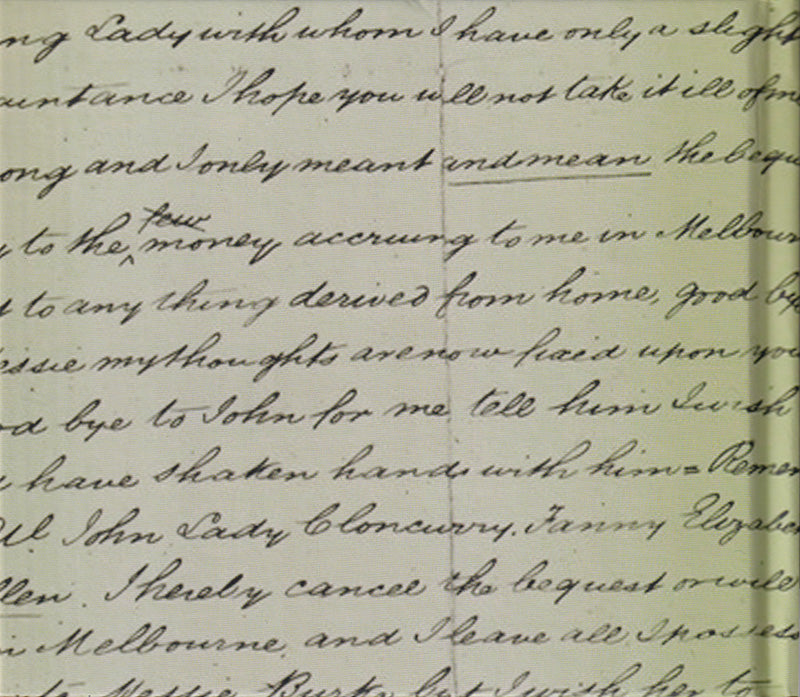 ng Lady with whom I have only a slight
aintance I hope you will not take it ill of me
ong and I only meant and mean the beque
y to the few money accruing to me in Melbour
to any thing derived from home, good bye
essie my thoughts are now fixed upon you
od bye to John for me tell him I wish
have shaken hands with him = Remem
John Lady Cloncurry. Fanny Elizabe
llen. I hereby cancel the bequest or will
n Melbourne and I leave all I possess
Nessie Burke but I wish her to